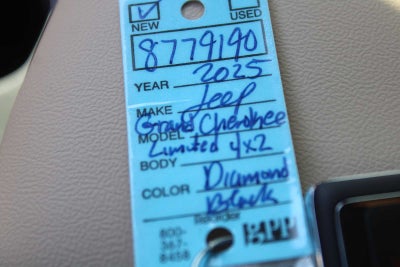 NEW USED
8779190
YEAR 2025
MAKE Jeep
MODEL Grand Cherokee
Limited 4x2
BODY
COLOR Diamond
Black
Reorder
800-
367-
8458
gpp